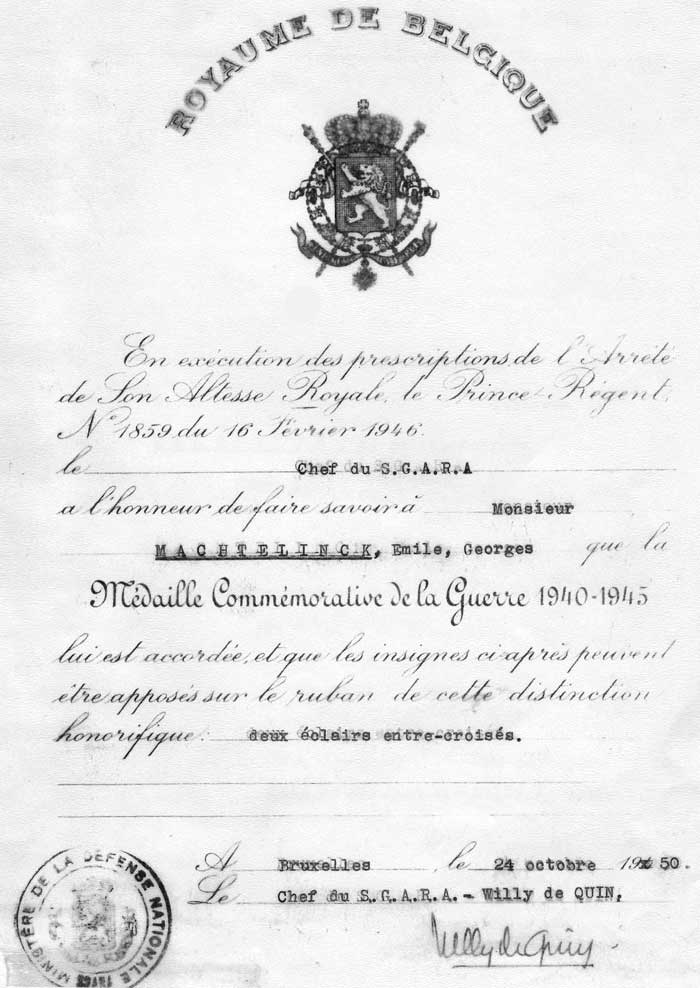 ROYAUME DE BELGIQUE
En exécution des prescriptions de l'Arrêté
de Son Altesse Royale, le Prince-Régent,
N° 1859 du 16 Février 1946.
le Chef du S.G.A.R.A
a l'honneur de faire savoir à Monsieur
MACHTELINCK, Emile, Georges que la
Médaille Commémorative de la Guerre 1940-1945
lui est accordée, et que les insignes ci-après peuvent
être apposés sur le ruban de cette distinction
honorifique: deux éclairs entre-croisés.
A Bruxelles, le 24 octobre 1950.
Le Chef du S.G.A.R.A.- Willy de QUIN,
Willy de Quin
MINISTÈRE DE LA DÉFENSE NATIONALE